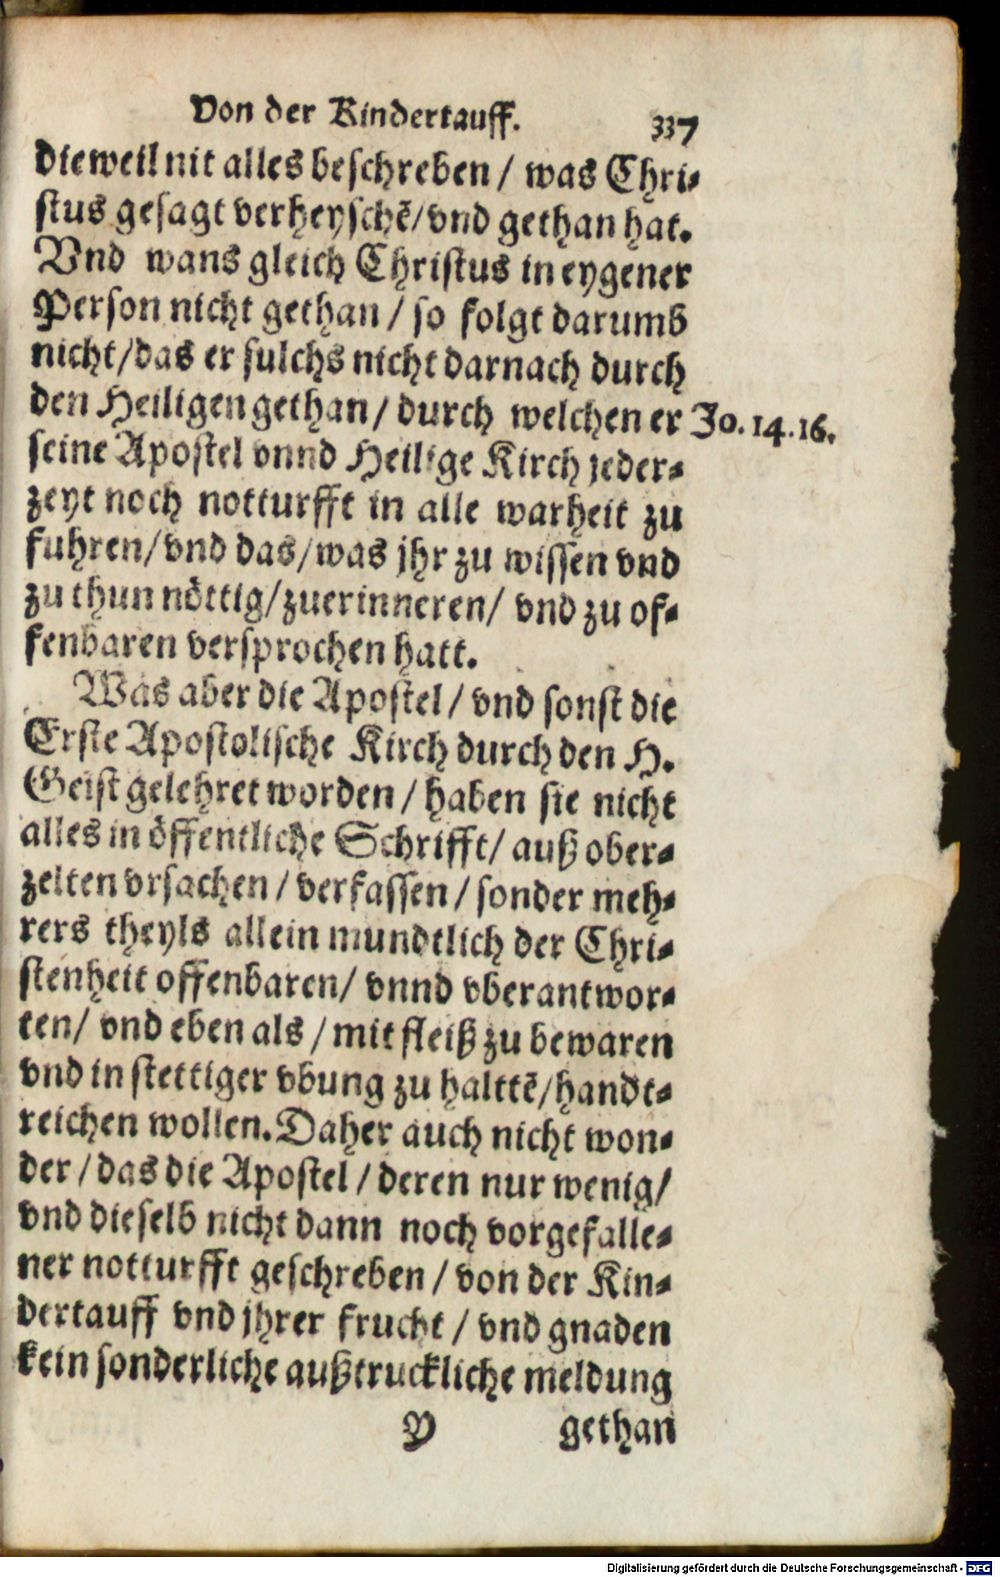 Von der Kindertauff. 337
dieweil nit alles beschreben / was Chri-
stus gesagt verheyschẽ/vnd gethan hat.
Vnd wans gleich Christus in eygener
Person nicht gethan / so folgt darumb
nicht/das er sulchs nicht darnach durch
den Heiligen gethan/ durch welchen er Jo. 14. 16.
seine Apostel vnnd Heilige Kirch jeder-
zeyt noch notturfft in alle warheit zu
fuhren/vnd das/was jhr zu wissen vnd
zu thun nöttig/zuerinneren/ vnd zu of-
fenbaren versprochen hatt.
Was aber die Apostel/ vnd sonst die
Erste Apostolische Kirch durch den H.
Geist gelehret worden / haben sie nicht
alles in öffentliche Schrifft/ auß ober-
zelten vrsachen / verfassen / sonder meh-
rers theyls allein mundtlich der Chri-
stenheit offenbaren/ vnnd vberantwor-
ten/ vnd eben als / mit fleiß zu bewaren
vnd in stettiger vbung zu halttẽ/handt-
reichen wollen. Daher auch nicht won-
der / das die Apostel / deren nur wenig/
vnd dieselb nicht dann noch vorgefalle-
ner notturfft geschreben / von der Kin-
dertauff vnd jhrer frucht / vnd gnaden
kein sonderliche außtruckliche meldung
Y gethan
Digitalisierung gefördert durch die Deutsche Forschungsgemeinschaft - DFG